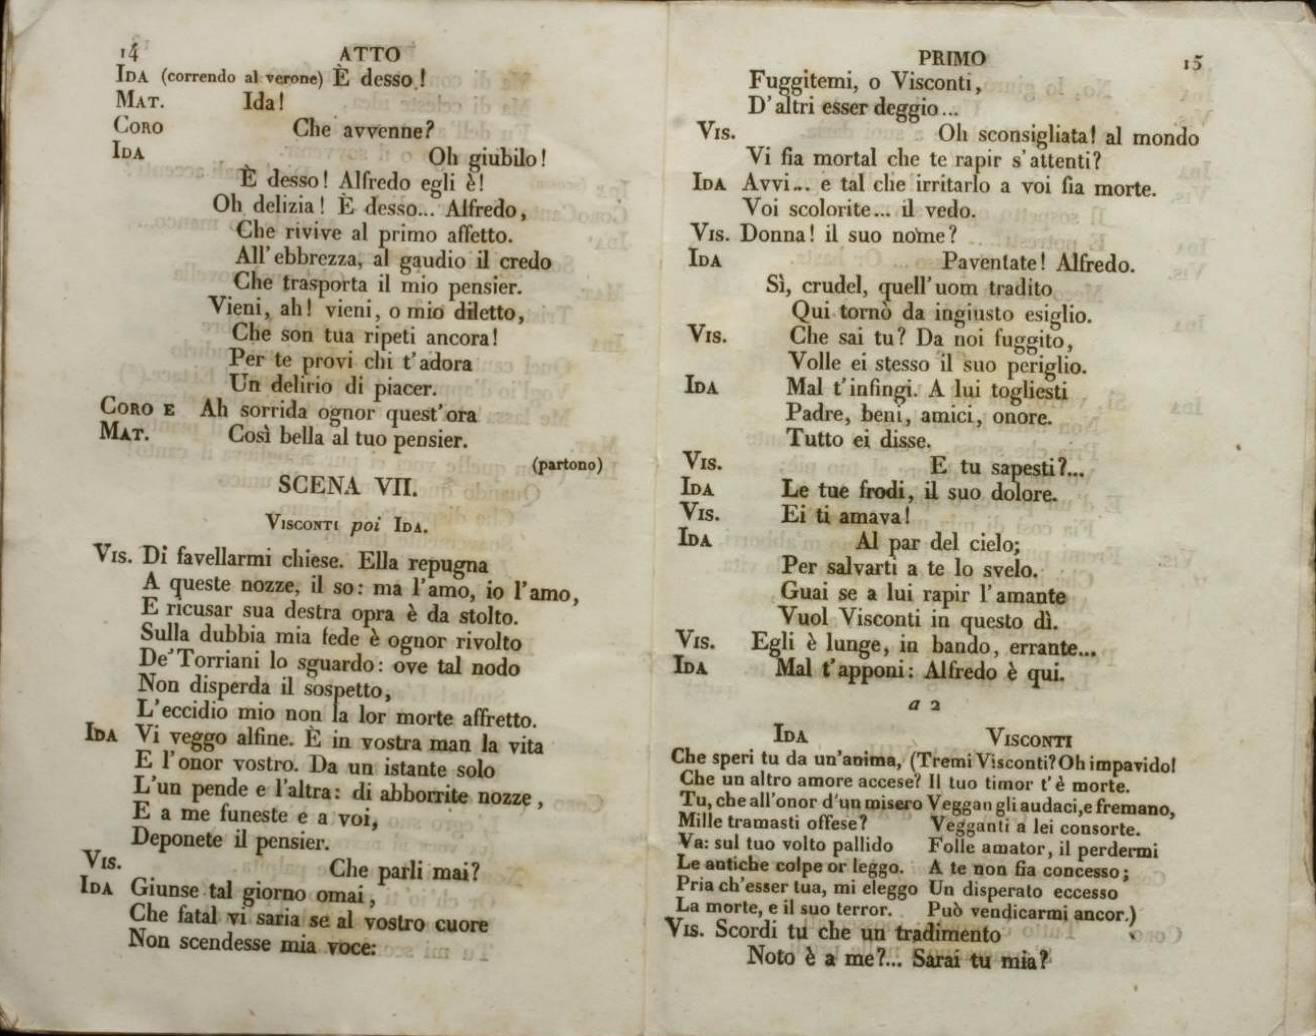 14
ATTO
IDA (correndo al verone) È desso!
MAT. Ida!
CORO Che avvenne?
IDA Oh giubilo!
È desso! Alfredo egli è!
Oh delizia! È desso... Alfredo,
Che rivive al primo affetto.
All'ebbrezza, al gaudio il credo
Che trasporta il mio pensier.
Vieni, ah! vieni, o mio diletto,
Che son tua ripeti ancora!
Per te provi chi t'adora
Un delirio di piacer.
CORO E Ah sorrida ognor quest'ora
MAT. Così bella al tuo pensier.
(partono)
SCENA VII.
VISCONTI poi IDA.
VIS. Di favellarmi chiese. Ella repugna
A queste nozze, il so: ma l'amo, io l'amo,
E ricusar sua destra opra è da stolto.
Sulla dubbia mia fede è ognor rivolto
De'Torriani lo sguardo: ove tal nodo
Non disperda il sospetto,
L'eccidio mio non la lor morte affretto.
IDA Vi veggo alfine. È in vostra man la vita
E l'onor vostro. Da un istante solo
L'un pende e l'altra: di abborrite nozze,
E a me funeste e a voi,
Deponete il pensier.
VIS. Che parli mai?
IDA Giunse tal giorno omai,
Che fatal vi saria se al vostro cuore
Non scendesse mia voce:
PRIMO
15
Fuggitemi, o Visconti,
D'altri esser deggio...
VIS. Oh sconsigliata! al mondo
Vi fia mortal che te rapir s'attenti?
IDA Avvi... e tal che irritarlo a voi fia morte.
Voi scolorite... il vedo.
VIS. Donna! il suo nome?
IDA Paventate! Alfredo.
Sì, crudel, quell'uom tradito
Qui tornò da ingiusto esiglio.
VIS. Che sai tu? Da noi fuggito,
Volle ei stesso il suo periglio.
IDA Mal t'infingi. A lui togliesti
Padre, beni, amici, onore.
Tutto ei disse.
VIS. E tu sapesti?...
IDA Le tue frodi, il suo dolore.
VIS. Ei ti amava!
IDA Al par del cielo;
Per salvarti a te lo svelo.
Guai se a lui rapir l'amante
Vuol Visconti in questo dì.
VIS. Egli è lunge, in bando, errante...
IDA Mal t'apponi: Alfredo è qui.
a 2
IDA
Che speri tu da un'anima,
Che un altro amore accese?
Tu, che all'onor d'un misero
Mille tramasti offese?
Va: sul tuo volto pallido
Le antiche colpe or leggo.
Pria ch'esser tua, mi eleggo
La morte, e il suo terror.
VISCONTI
(Tremi Visconti? Oh impavido!
Il tuo timor t'è morte.
Veggan gli audaci, e fremano,
Vegganti a lei consorte.
Folle amator, il perdermi
A te non fia concesso;
Un disperato eccesso
Può vendicarmi ancor.)
VIS. Scordi tu che un tradimento
Noto è a me?... Sarai tu mia?